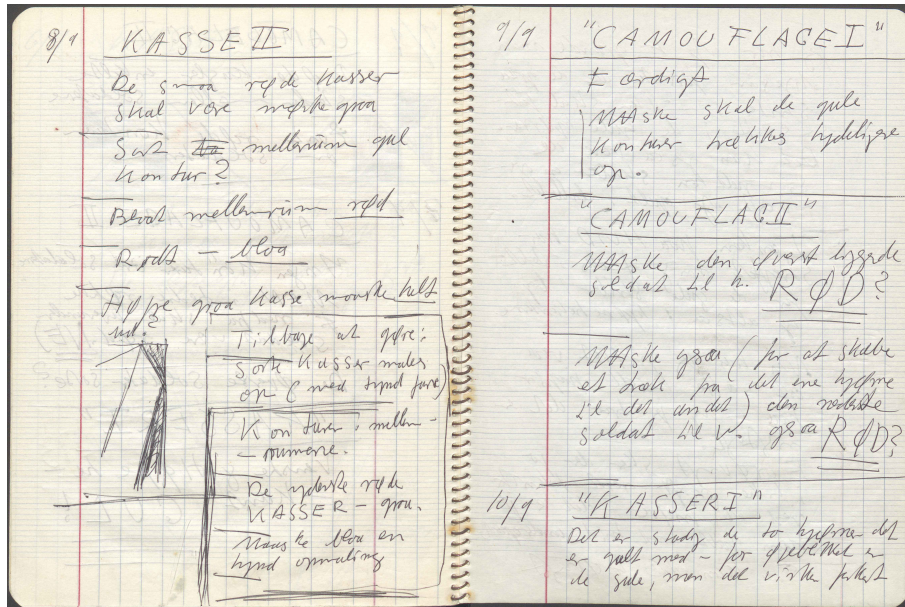 8/9
KASSE II
De smaa røde Kasser
skal være mørke graa
Sort mellemrum gul
Kontur?
Blaat mellemrum rød
Rødt — blaa
Højre graa Kasse maaske helt
ud?
Tilbage at gøre:
Sorte Kasser males
op (med tynd farve)
Konturer i mellem-
-rummene.
De yderste røde
KASSER - graa.
Maaske blaa en
tynd opmaling
9/9
"CAMOUFLAGE I"
Færdigt
Maaske skal de gule
Konturer trækkes tydeligere
op.
"CAMOUFLAGE II"
Maaske den øverst liggende
soldat til h. RØD?
Maaske ogsaa (for at skabe
et træk fra det ene hjørne
til det andet) den nederste
soldat til v. ogsaa RØD?
10/9
"KASSER I"
Det er stadig de to hjørner det
er galt med - for øjeblikket er
de gule, men det virker forkert